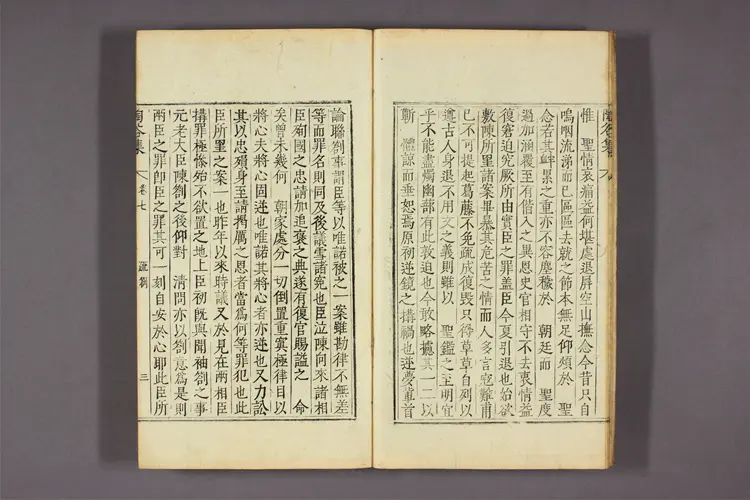 陶谷集 八
惟 聖情哀痛益何堪處退屛空山撫念今昔只自
嗚咽流涕而已區區去就之節本無足仰煩於 聖
念若其釁累之重亦不容塵穢於 朝廷而 聖度
過加涵覆至有偕入之異恩史官相守不去衷情益
復窘迫究厥所由實臣之罪蓋臣今夏引退也始欲
敷陳所里諸案畢暴其危苦之情而人多言寃難甫
已不可提起葛藤不免疏成復毁只得草草自列以
遵古人身退不用文之義則雖以 聖鑑之至明宜
乎不能盡燭幽郁有此敦迫也今敢略摭其一二以
斬 體諒而垂恕焉原初逆鏡之搆禍也逆夢重首
論聯劄事謂臣等以唯諾被之一案雖勘律不無差
等而罪名則同及後議雪諸寃也臣泣陳向來諸相
臣殉國之忠請加追褒之典遂有復官賜謚之 命
矣曾未幾何 朝家處分一切倒置重寘極律目以
將心夫將心固逆也唯諾其將心者亦逆也又力訟
其以忠殞身至請揭厲之恩者當爲何等罪犯也此
臣所里之案一也昨年以來時議又於見在兩相臣
搆罪極慘殆不欲置之地上臣初旣與聞袖劄之事
元老大臣陳劄之後仰對 清問亦以劄意爲是則
兩臣之罪卽臣之罪其可一刻自安於心耶此臣所
陶谷集 卷七 疏劄 三